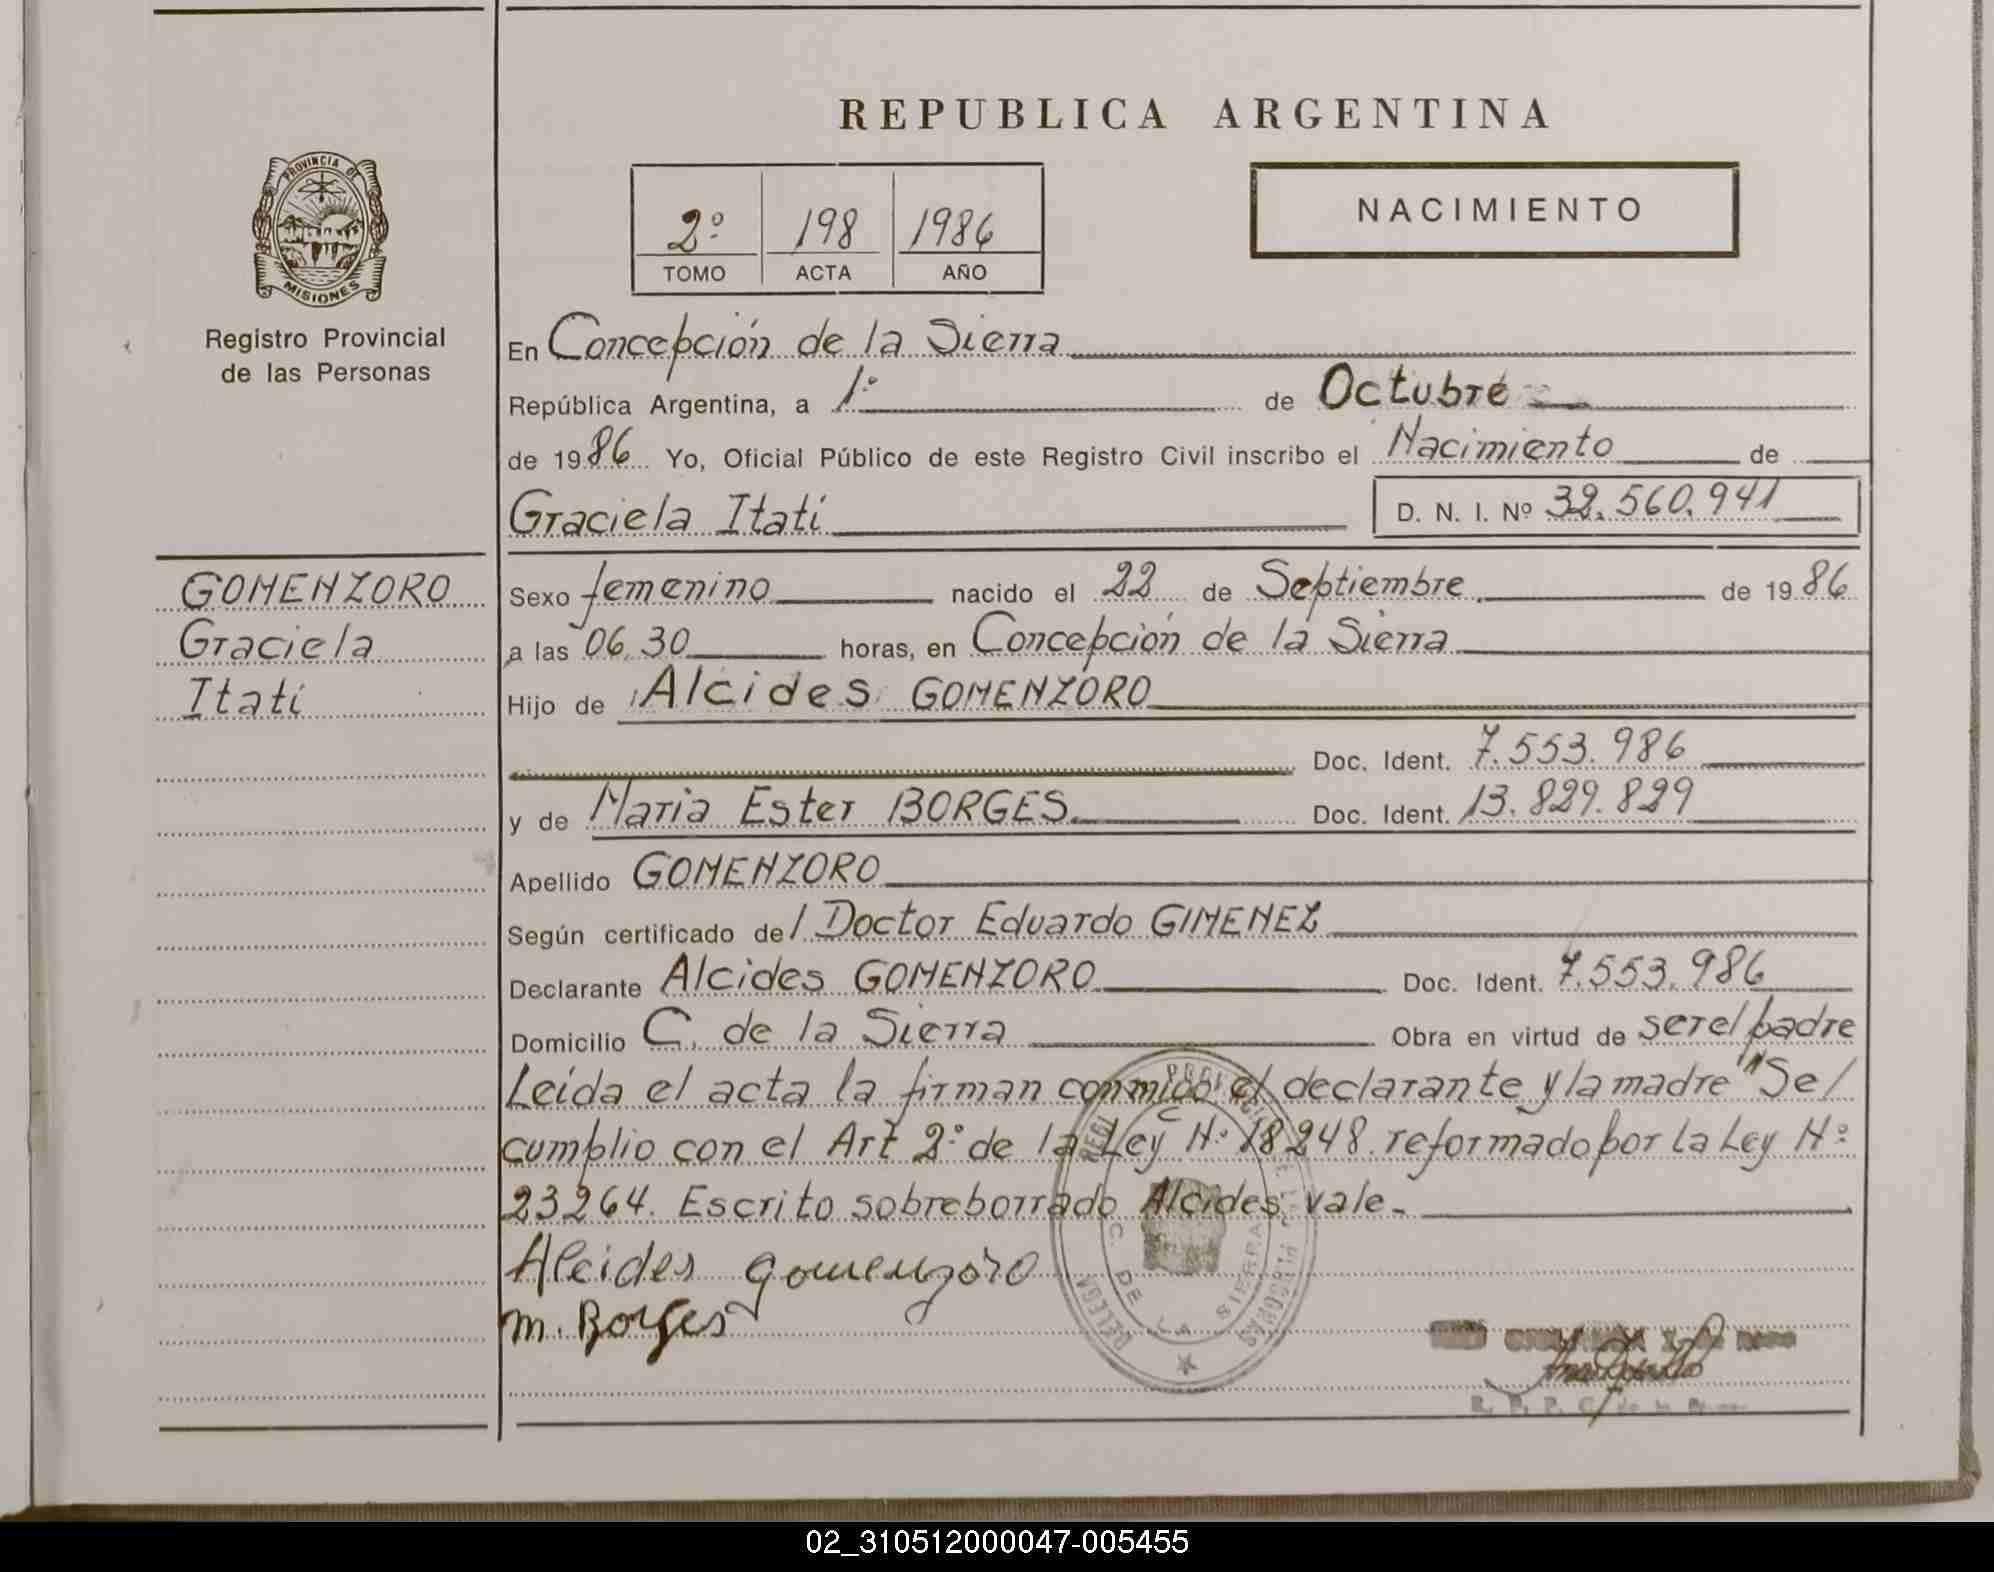 REPUBLICA ARGENTINA
PROVINCIA DE
MISIONES
Registro Provincial
de las Personas
2º 198 1986
TOMO ACTA AÑO
NACIMIENTO
En Concepción de la Sierra
República Argentina, a 1º de Octubre
de 1986 Yo, Oficial Público de este Registro Civil inscribo el Nacimiento de
Graciela Itatí D. N. I. Nº 32.560.941
GOMENZORO
Graciela
Itatí
Sexo femenino nacido el 22 de Septiembre de 1986
a las 06,30 horas, en Concepción de la Sierra
Hijo de Alcides GOMENZORO
Doc. Ident. 7.553.986
y de Maria Ester BORGES. Doc. Ident. 13.829.829
Apellido GOMENZORO
Según certificado del Doctor Eduardo GIMENEZ
Declarante Alcides GOMENZORO Doc. Ident. 7.553.986
Domicilio C. de la Sierra Obra en virtud de ser el padre
Leída el acta la firman conmigo el declarante y la madre "Se/
cumplio con el Art 2º de la Ley Nº 18248. reformado por la Ley Nº
23264. Escrito sobreborrado Alcides, vale.
Alcides Gomenzoro
M. Borges
C. DE LA SIERRA
02_310512000047-005455